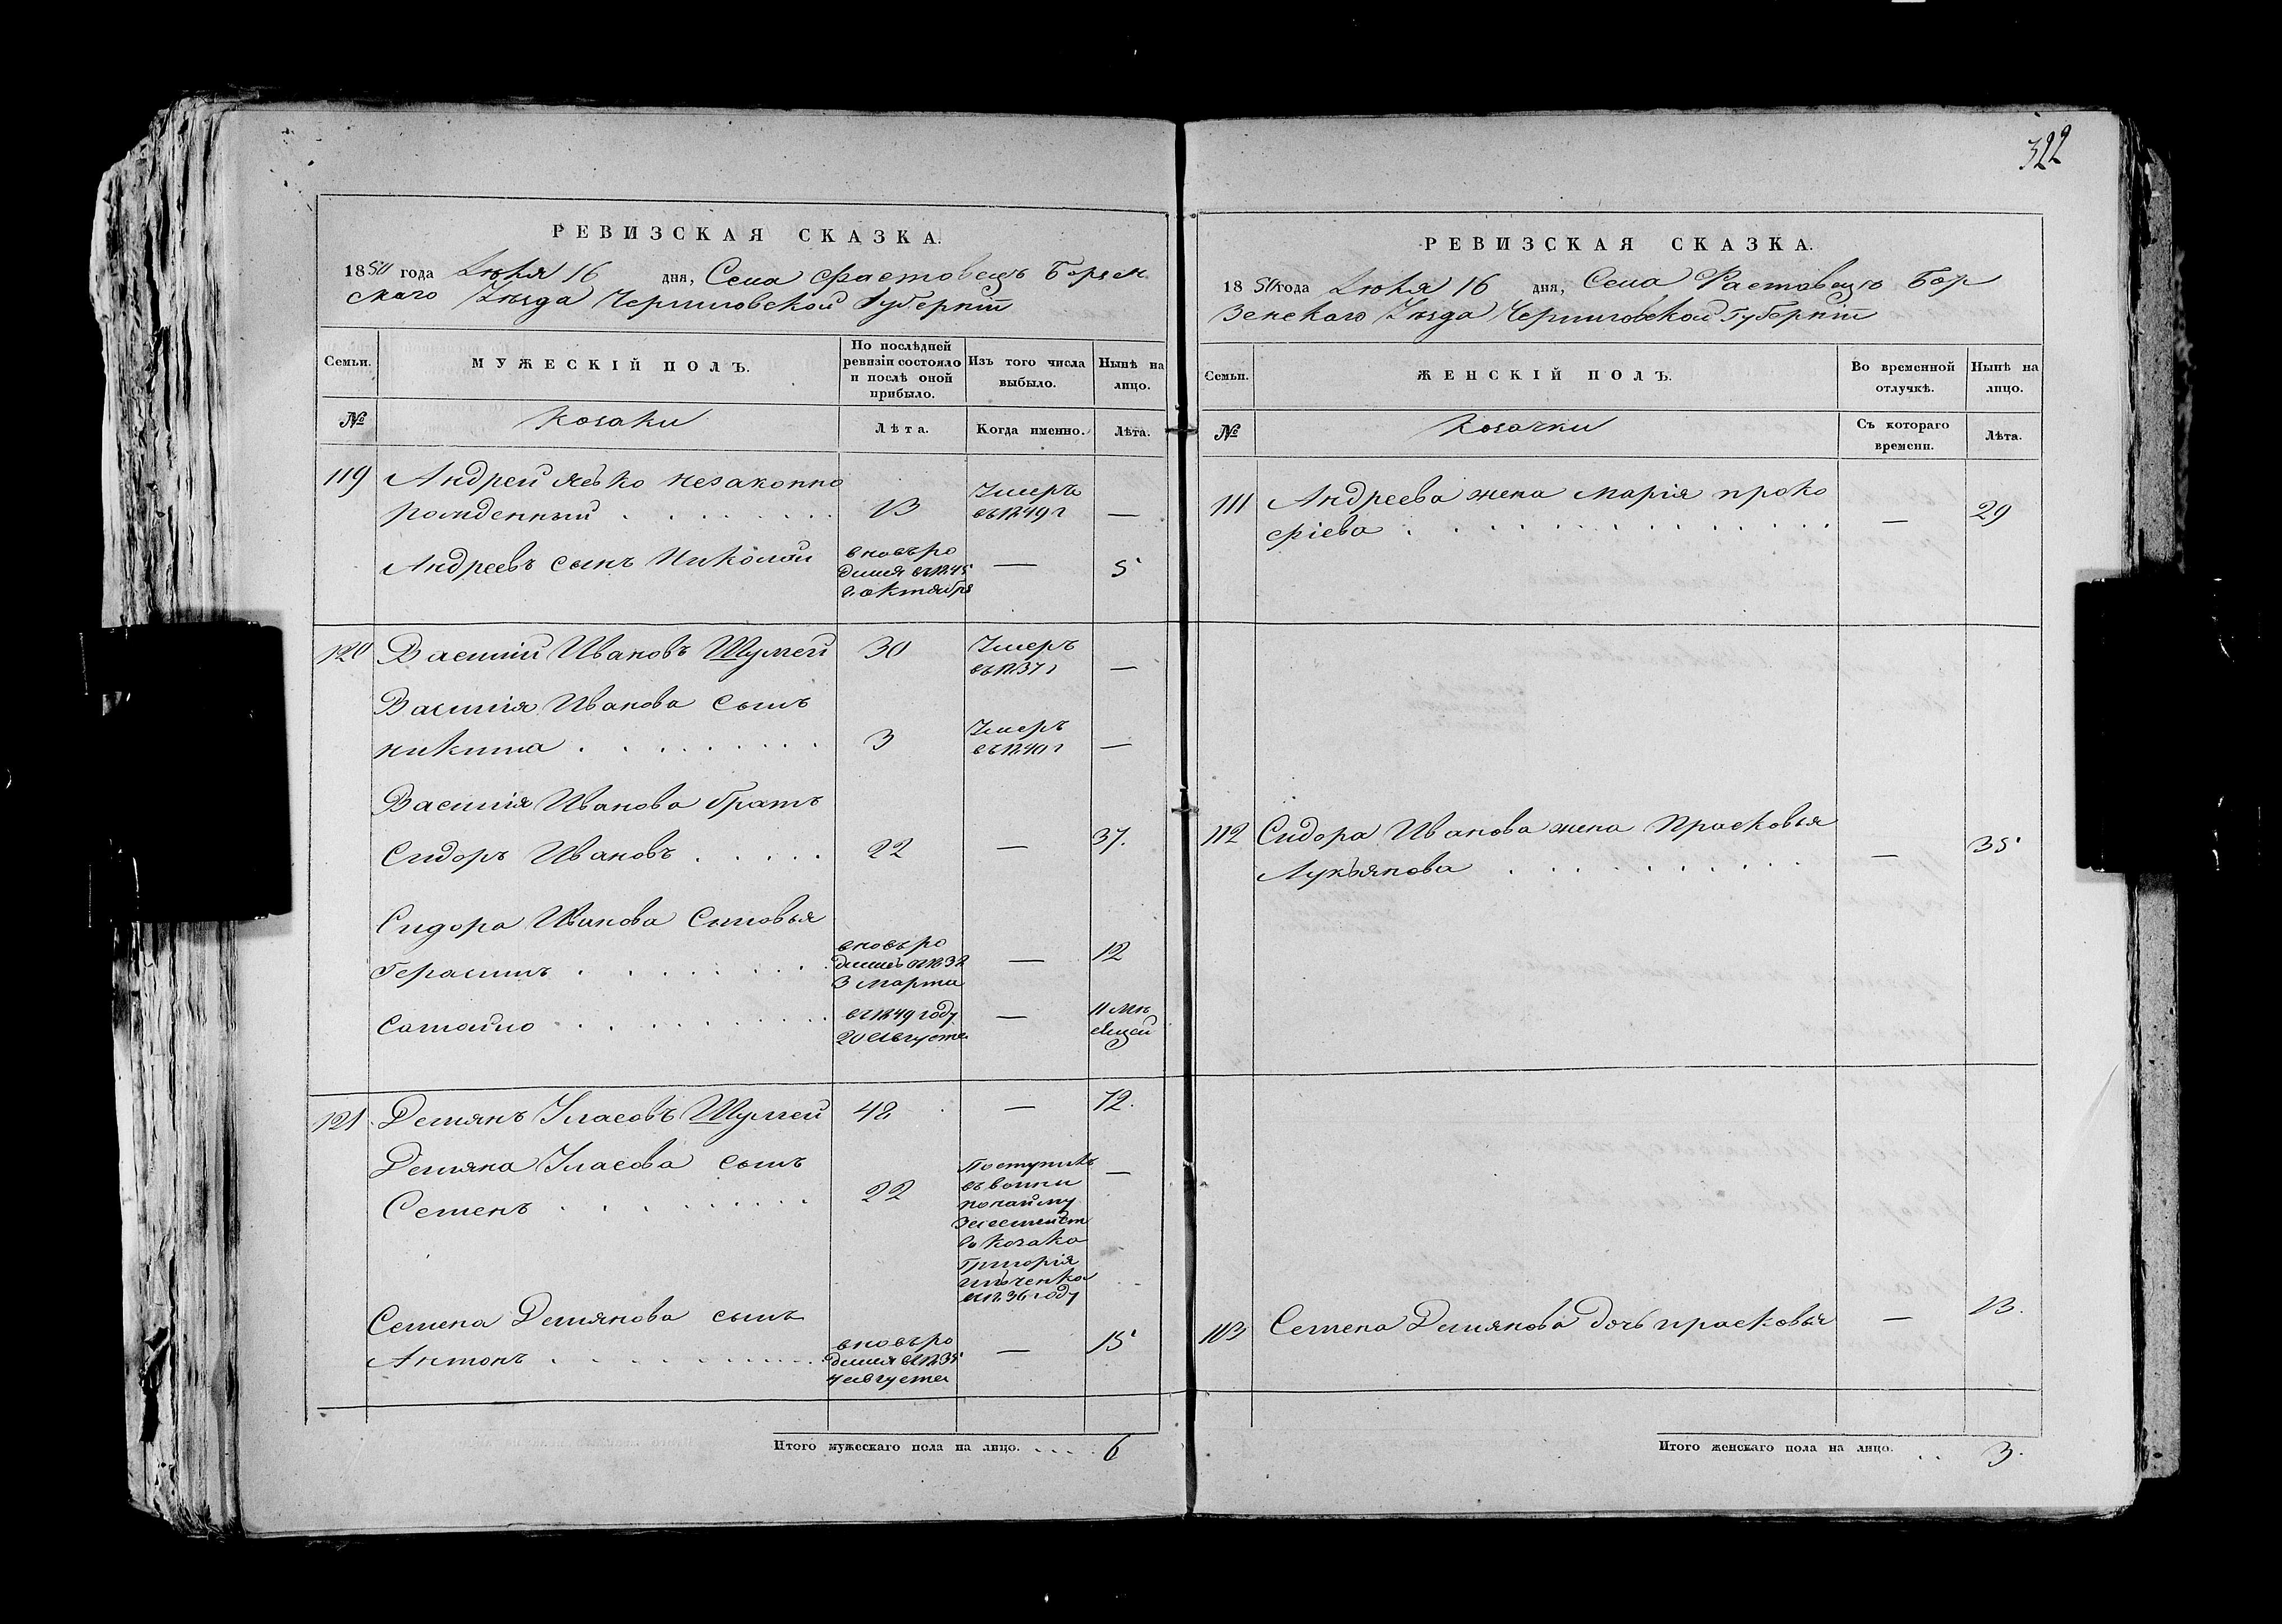 322
РЕВИЗСКАЯ СКАЗКА.
1850 года Июня 16 дня, Села Фастовецъ Борзен
скаго Уѣзда Черниговской Губерніи
Семьи.
МУЖЕСКІЙ ПОЛЪ.
По послѣдней ревизіи состояло и послѣ оной прибыло.
Изъ того числа выбыло.
Нынѣ на лицо.
№
Козаки
Лѣта.
Когда именно.
Лѣта.
119 Андрей незаконно
рожденный 13 Умеръ въ 1849 г —
Андреевъ сынъ Николай вновь ро
дился въ 1845 — 5
г. октября
120 Василий Ивановъ Шумей 30 Умеръ
въ 1837 г —
Василія Иванова сынъ
Никита 3 Умеръ
въ 1840 г —
Василія Иванова братъ
Сидоръ Ивановъ 22 — 37.
Сидора Иванова сыновья
Герасимъ вновь ро
дился — 12
3 марта
Самойло въ 1849 году — 11 мѣ
20 августа сяцей
121 Демянъ Уласовъ Шумей 48 — 72.
Демяна Уласова сынъ
Семенъ 22 Поступилъ —
въ
по найму
за семейст
во козака
Григорія
въ 1836 году
Семена Демянова сынъ
Антонъ вновь ро
дился въ 1835 — 15
августа
Итого мужескаго пола на лицо. 6
РЕВИЗСКАЯ СКАЗКА.
1850 года Июня 16 дня, Села Фастовецъ Бор
зенскаго Уѣзда Черниговской Губерніи
Семьи.
ЖЕНСКІЙ ПОЛЪ.
Во временной отлучкѣ.
Нынѣ на лицо.
№
Козачки
Съ котораго времени.
Лѣта.
111 Андреева жена Марія Проко
фіева — 29
112 Сидора Иванова жена Прасковья
Лукьянова — 35
113 Семена Демянова дочь Прасковья — 13.
Итого женскаго пола на лицо. 3.